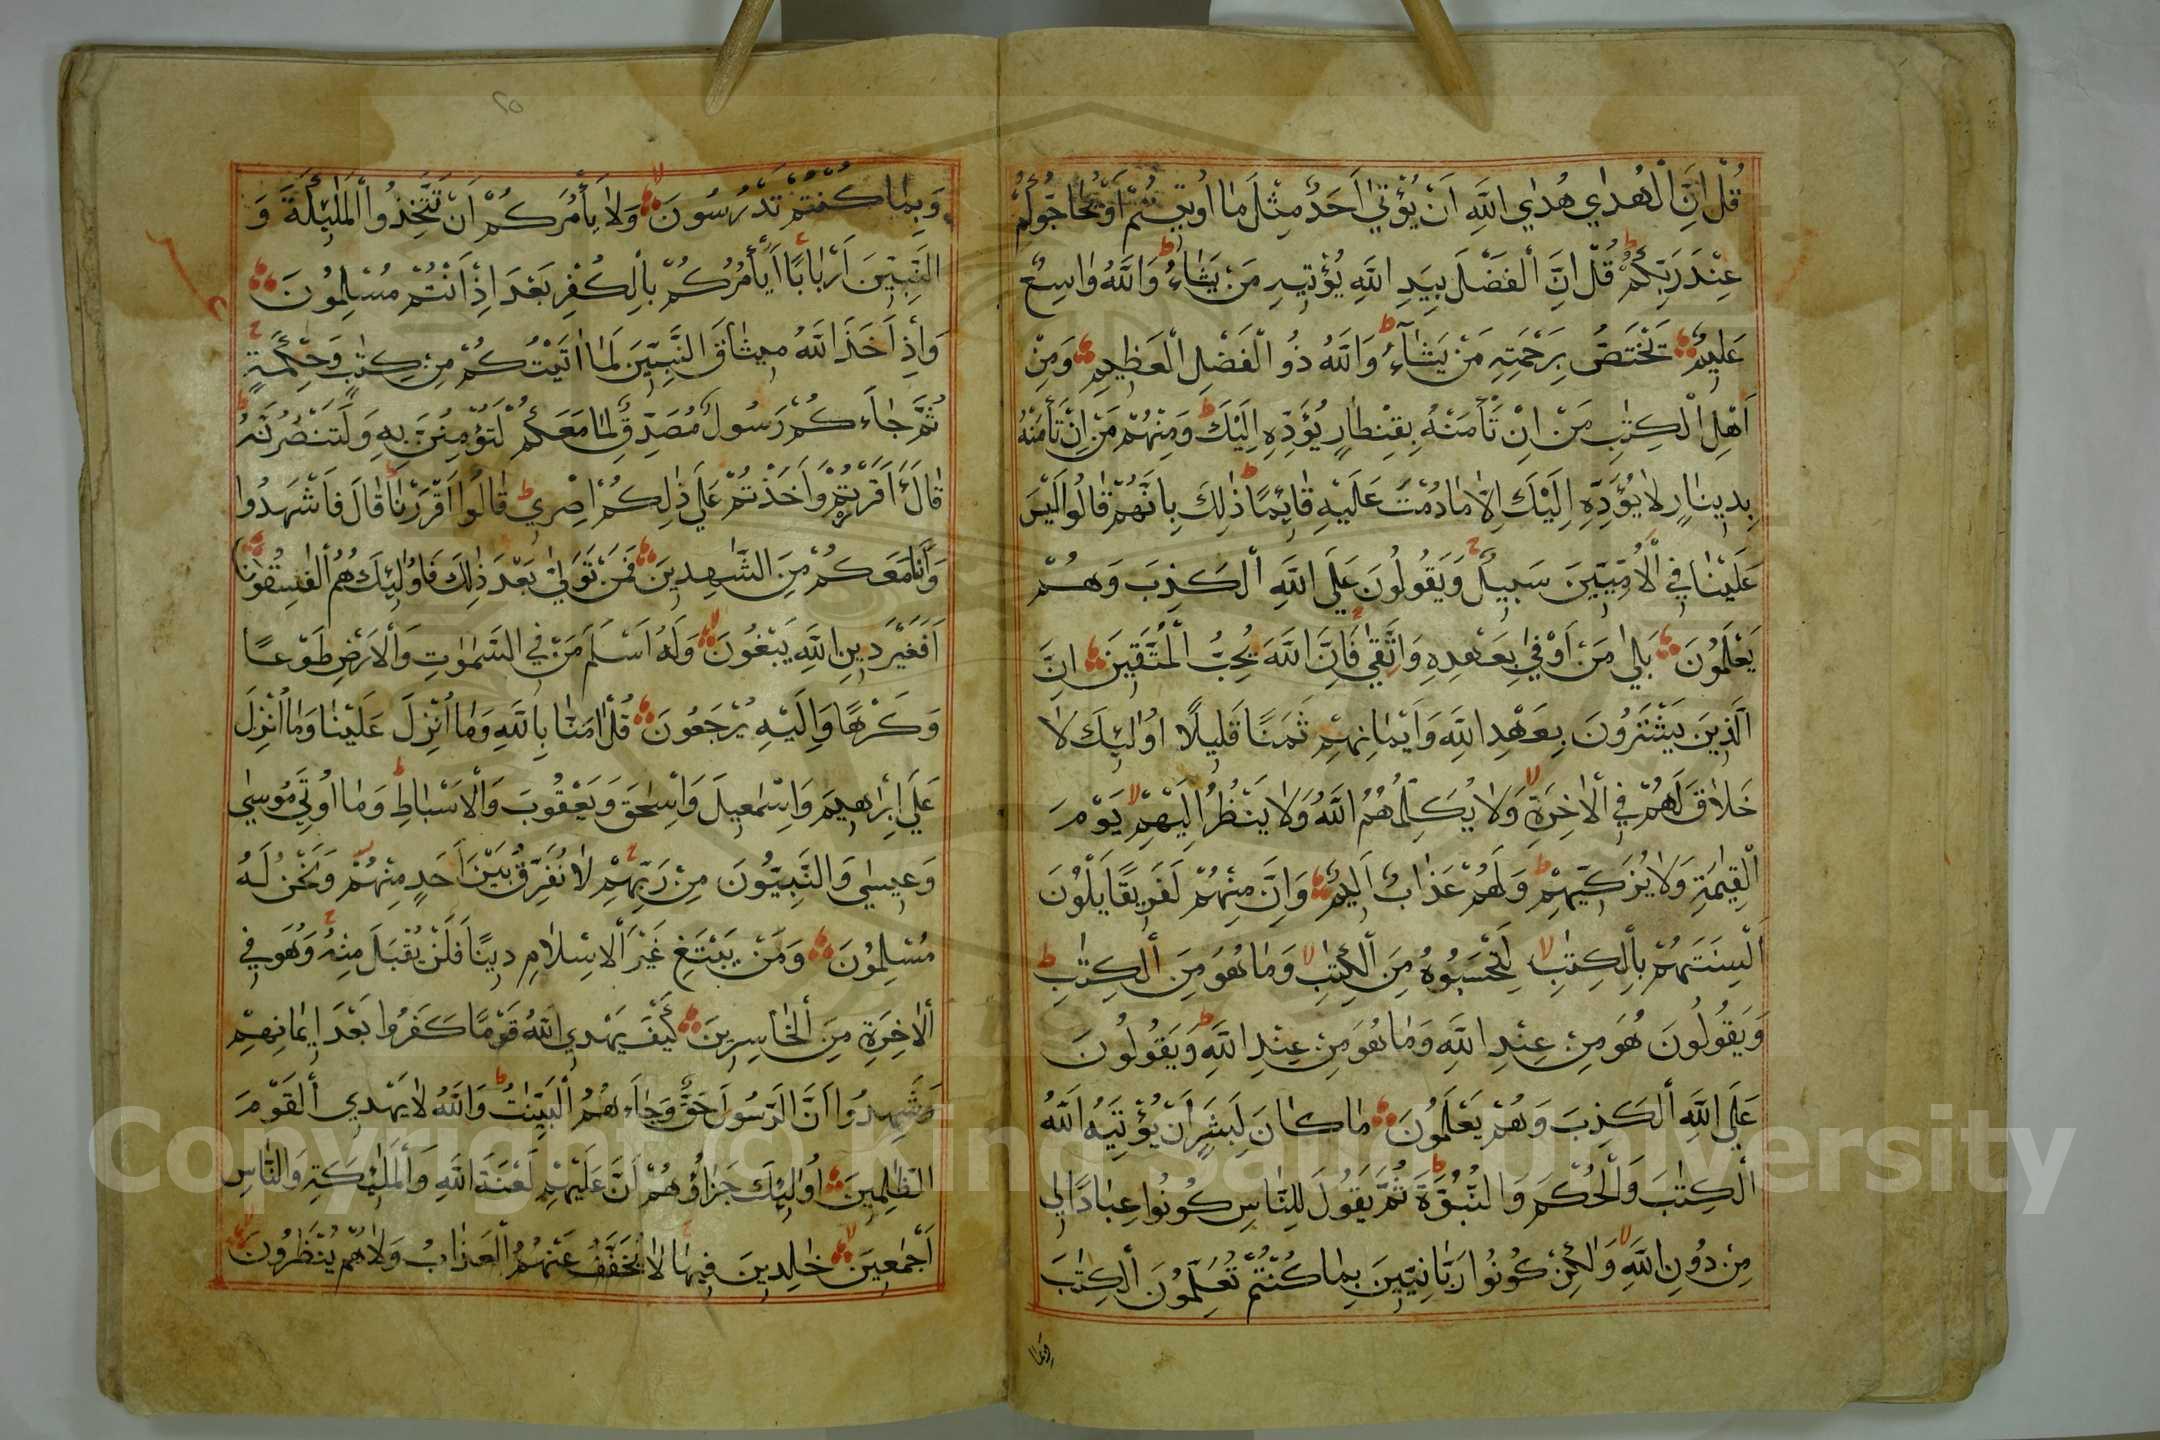 قُلْ اِنَّ الْهُدٰي هُدٰي اللَّهِ اَنْ يُؤْتٰي اَحَدٌ مِثْلَ مٰا اُوتِيتُمْ اَوْ يُحٰاجُّوكُمْ
عِنْدَ رَبِّكُمْ قُلْ اِنَّ الْفَضْلَ بِيَدِ اللَّهِ يُؤْتِيهِ مَنْ يَشٰاءُ وَاللَّهُ وٰاسِعٌ
عَلِيمٌ يَخْتَصُّ بِرَحْمَتِهِ مَنْ يَشٰآءُ وَاللَّهُ ذُو الْفَضْلِ الْعَظِيمِ وَمِنْ
اَهْلِ الْكِتٰبِ مَنْ اِنْ تَأْمَنْهُ بِقِنْطٰارٍ يُؤَدِّهِ اِلَيْكَ وَمِنْهُمْ مَنْ اِنْ تَأْمَنْهُ
بِدِينٰارٍ لٰا يُؤَدِّهِ اِلَيْكَ اِلّٰا مٰا دُمْتَ عَلَيْهِ قٰائِمًا ذٰلِكَ بِاَنَّهُمْ قٰالُوا لَيْسَ
عَلَيْنٰا فِي الْاُمِّيِّينَ سَبِيلٌ وَيَقُولُونَ عَلَي اللَّهِ الْكَذِبَ وَهُمْ
يَعْلَمُونَ بَلٰي مَنْ اَوْفٰي بِعَهْدِهِ وَاتَّقٰي فَاِنَّ اللَّهَ يُحِبُّ الْمُتَّقِينَ اِنَّ
الَّذِينَ يَشْتَرُونَ بِعَهْدِ اللَّهِ وَاَيْمٰانِهِمْ ثَمَنًا قَلِيلًا اُولٰئِكَ لٰا
خَلٰاقَ لَهُمْ فِي الْاٰخِرَةِ وَلٰا يُكَلِّمُهُمُ اللَّهُ وَلٰا يَنْظُرُ اِلَيْهِمْ يَوْمَ
الْقِيٰمَةِ وَلٰا يُزَكِّيهِمْ وَلَهُمْ عَذٰابٌ اَلِيمٌ وَاِنَّ مِنْهُمْ لَفَرِيقًا يَلْوُنَ
اَلْسِنَتَهُمْ بِالْكِتٰبِ لِتَحْسَبُوهُ مِنَ الْكِتٰبِ وَمٰا هُوَ مِنَ الْكِتٰبِ
وَيَقُولُونَ هُوَ مِنْ عِنْدِ اللَّهِ وَمٰا هُوَ مِنْ عِنْدِ اللَّهِ وَيَقُولُونَ
عَلَي اللَّهِ الْكَذِبَ وَهُمْ يَعْلَمُونَ مٰا كٰانَ لِبَشَرٍ اَنْ يُؤْتِيَهُ اللَّهُ
الْكِتٰبَ وَالْحُكْمَ وَالنُّبُوَّةَ ثُمَّ يَقُولَ لِلنّٰاسِ كُونُوا عِبٰادًا لِي
مِنْ دُونِ اللَّهِ وَلٰكِنْ كُونُوا رَبّٰانِيِّينَ بِمٰا كُنْتُمْ تُعَلِّمُونَ الْكِتٰبَ
وَبِمٰا
وَبِمٰا كُنْتُمْ تَدْرُسُونَ وَلٰا يَأْمُرَكُمْ اَنْ تَتَّخِذُوا الْمَلٰئِكَةَ وَ
النَّبِيِّينَ اَرْبٰابًا اَيَأْمُرُكُمْ بِالْكُفْرِ بَعْدَ اِذْ اَنْتُمْ مُسْلِمُونَ
وَاِذْ اَخَذَ اللَّهُ مِيثٰاقَ النَّبِيِّينَ لَمٰا اٰتَيْتُكُمْ مِنْ كِتٰبٍ وَحِكْمَةٍ
ثُمَّ جٰاءَكُمْ رَسُولٌ مُصَدِّقٌ لِمٰا مَعَكُمْ لَتُؤْمِنُنَّ بِهِ وَلَتَنْصُرُنَّهُ
قٰالَ ءَاَقْرَرْتُمْ وَاَخَذْتُمْ عَلَي ذٰلِكُمْ اِصْرِي قٰالُوا اَقْرَرْنٰا قٰالَ فَاشْهَدُوا
وَاَنَا مَعَكُمْ مِنَ الشّٰهِدِينَ فَمَنْ تَوَلّٰي بَعْدَ ذٰلِكَ فَاُولٰئِكَ هُمُ الْفٰسِقُونَ
اَفَغَيْرَ دِينِ اللَّهِ يَبْغُونَ وَلَهُ اَسْلَمَ مَنْ فِي السَّمٰوٰتِ وَالْاَرْضِ طَوْعًا
وَكَرْهًا وَاِلَيْهِ يُرْجَعُونَ قُلْ اٰمَنّٰا بِاللَّهِ وَمٰا اُنْزِلَ عَلَيْنٰا وَمٰا اُنْزِلَ
عَلَي اِبْرٰاهِيمَ وَاِسْمٰعِيلَ وَاِسْحٰقَ وَيَعْقُوبَ وَالْاَسْبٰاطِ وَمٰا اُوتِيَ مُوسٰي
وَعِيسٰي وَالنَّبِيُّونَ مِنْ رَبِّهِمْ لٰا نُفَرِّقُ بَيْنَ اَحَدٍ مِنْهُمْ وَنَحْنُ لَهُ
مُسْلِمُونَ وَمَنْ يَبْتَغِ غَيْرَ الْاِسْلٰامِ دِينًا فَلَنْ يُقْبَلَ مِنْهُ وَهُوَ فِي
الْاٰخِرَةِ مِنَ الْخٰاسِرِينَ كَيْفَ يَهْدِي اللَّهُ قَوْمًا كَفَرُوا بَعْدَ اِيمٰانِهِمْ
وَشَهِدُوا اَنَّ الرَّسُولَ حَقٌّ وَجٰاءَهُمُ الْبَيِّنٰتُ وَاللَّهُ لٰا يَهْدِي الْقَوْمَ
الظّٰلِمِينَ اُولٰئِكَ جَزٰاؤُهُمْ اَنَّ عَلَيْهِمْ لَعْنَةَ اللَّهِ وَالْمَلٰئِكَةِ وَالنّٰاسِ
اَجْمَعِينَ خٰلِدِينَ فِيهٰا لٰا يُخَفَّفُ عَنْهُمُ الْعَذٰابُ وَلٰا هُمْ يُنْظَرُونَ
Copyright © King Saud University